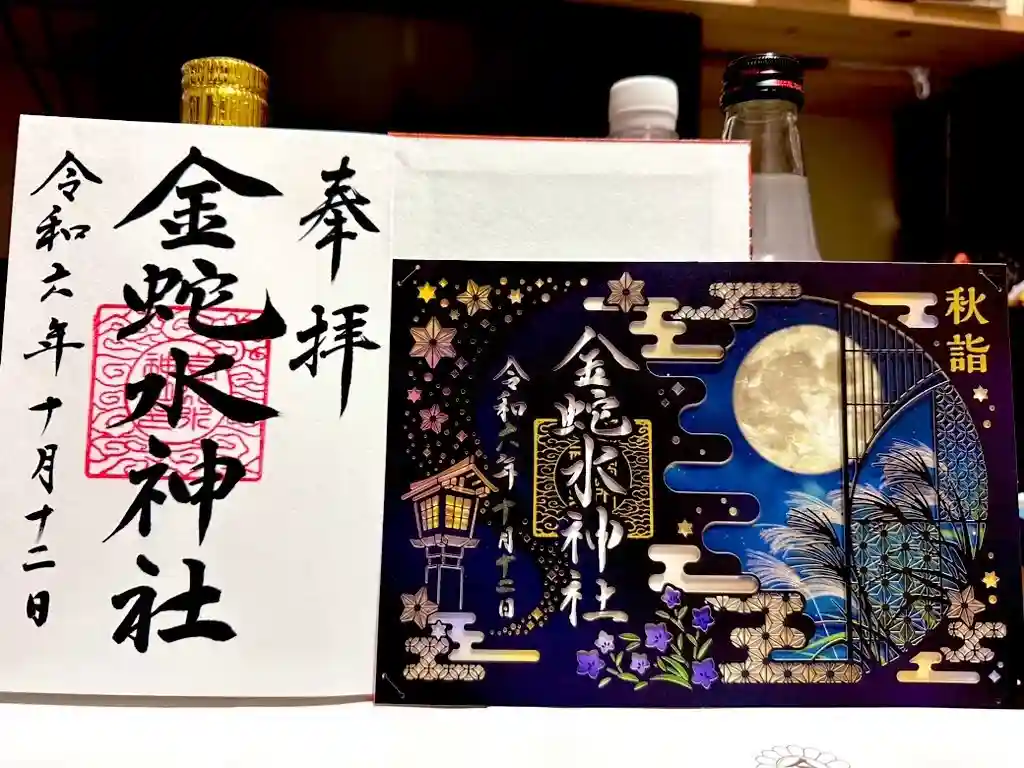 奉拝
金蛇水神社
令和六年十月十二日
秋詣
金蛇水神社
令和六年十月十二日